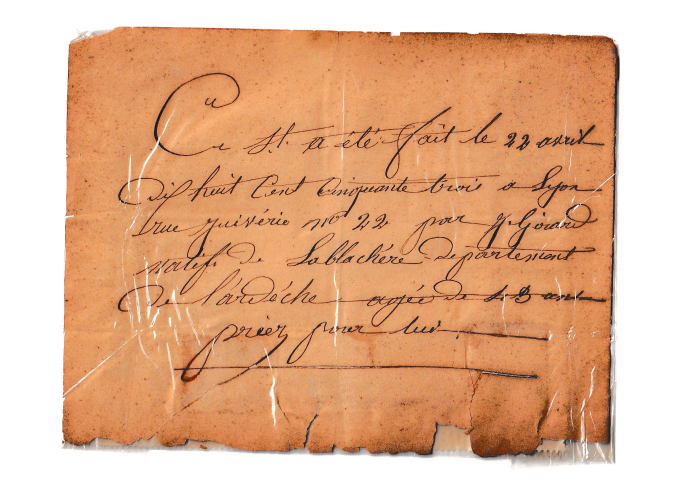 Ce St a été fait le 22 avril
dix huit Cent Cinquante trois a Lyon
rue juiverie no 22 par J. Girard
natif de Lablachére departement
de l'ardéche agée de ans
priez pour lui.